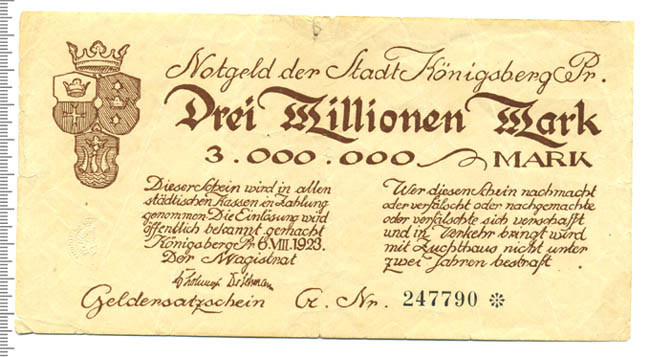 Notgeld der Stadt Königsberg Pr.
Drei Millionen Mark
3.000.000 MARK
Dieser Schein wird in allen
städtischen Kassen in Zahlung
genommen. Die Einlösung wird
öffentlich bekannt gemacht
Königsberg Pr. 6.VIII.1923.
Der Magistrat
Wer diesen Schein nachmacht
oder verfälscht oder nachgemachte
oder verfälschte sich verschafft
und in Verkehr bringt wird
mit Zuchthaus nicht unter
zwei Jahren bestraft.
Geldersatzschein G. Nr. 247790 *